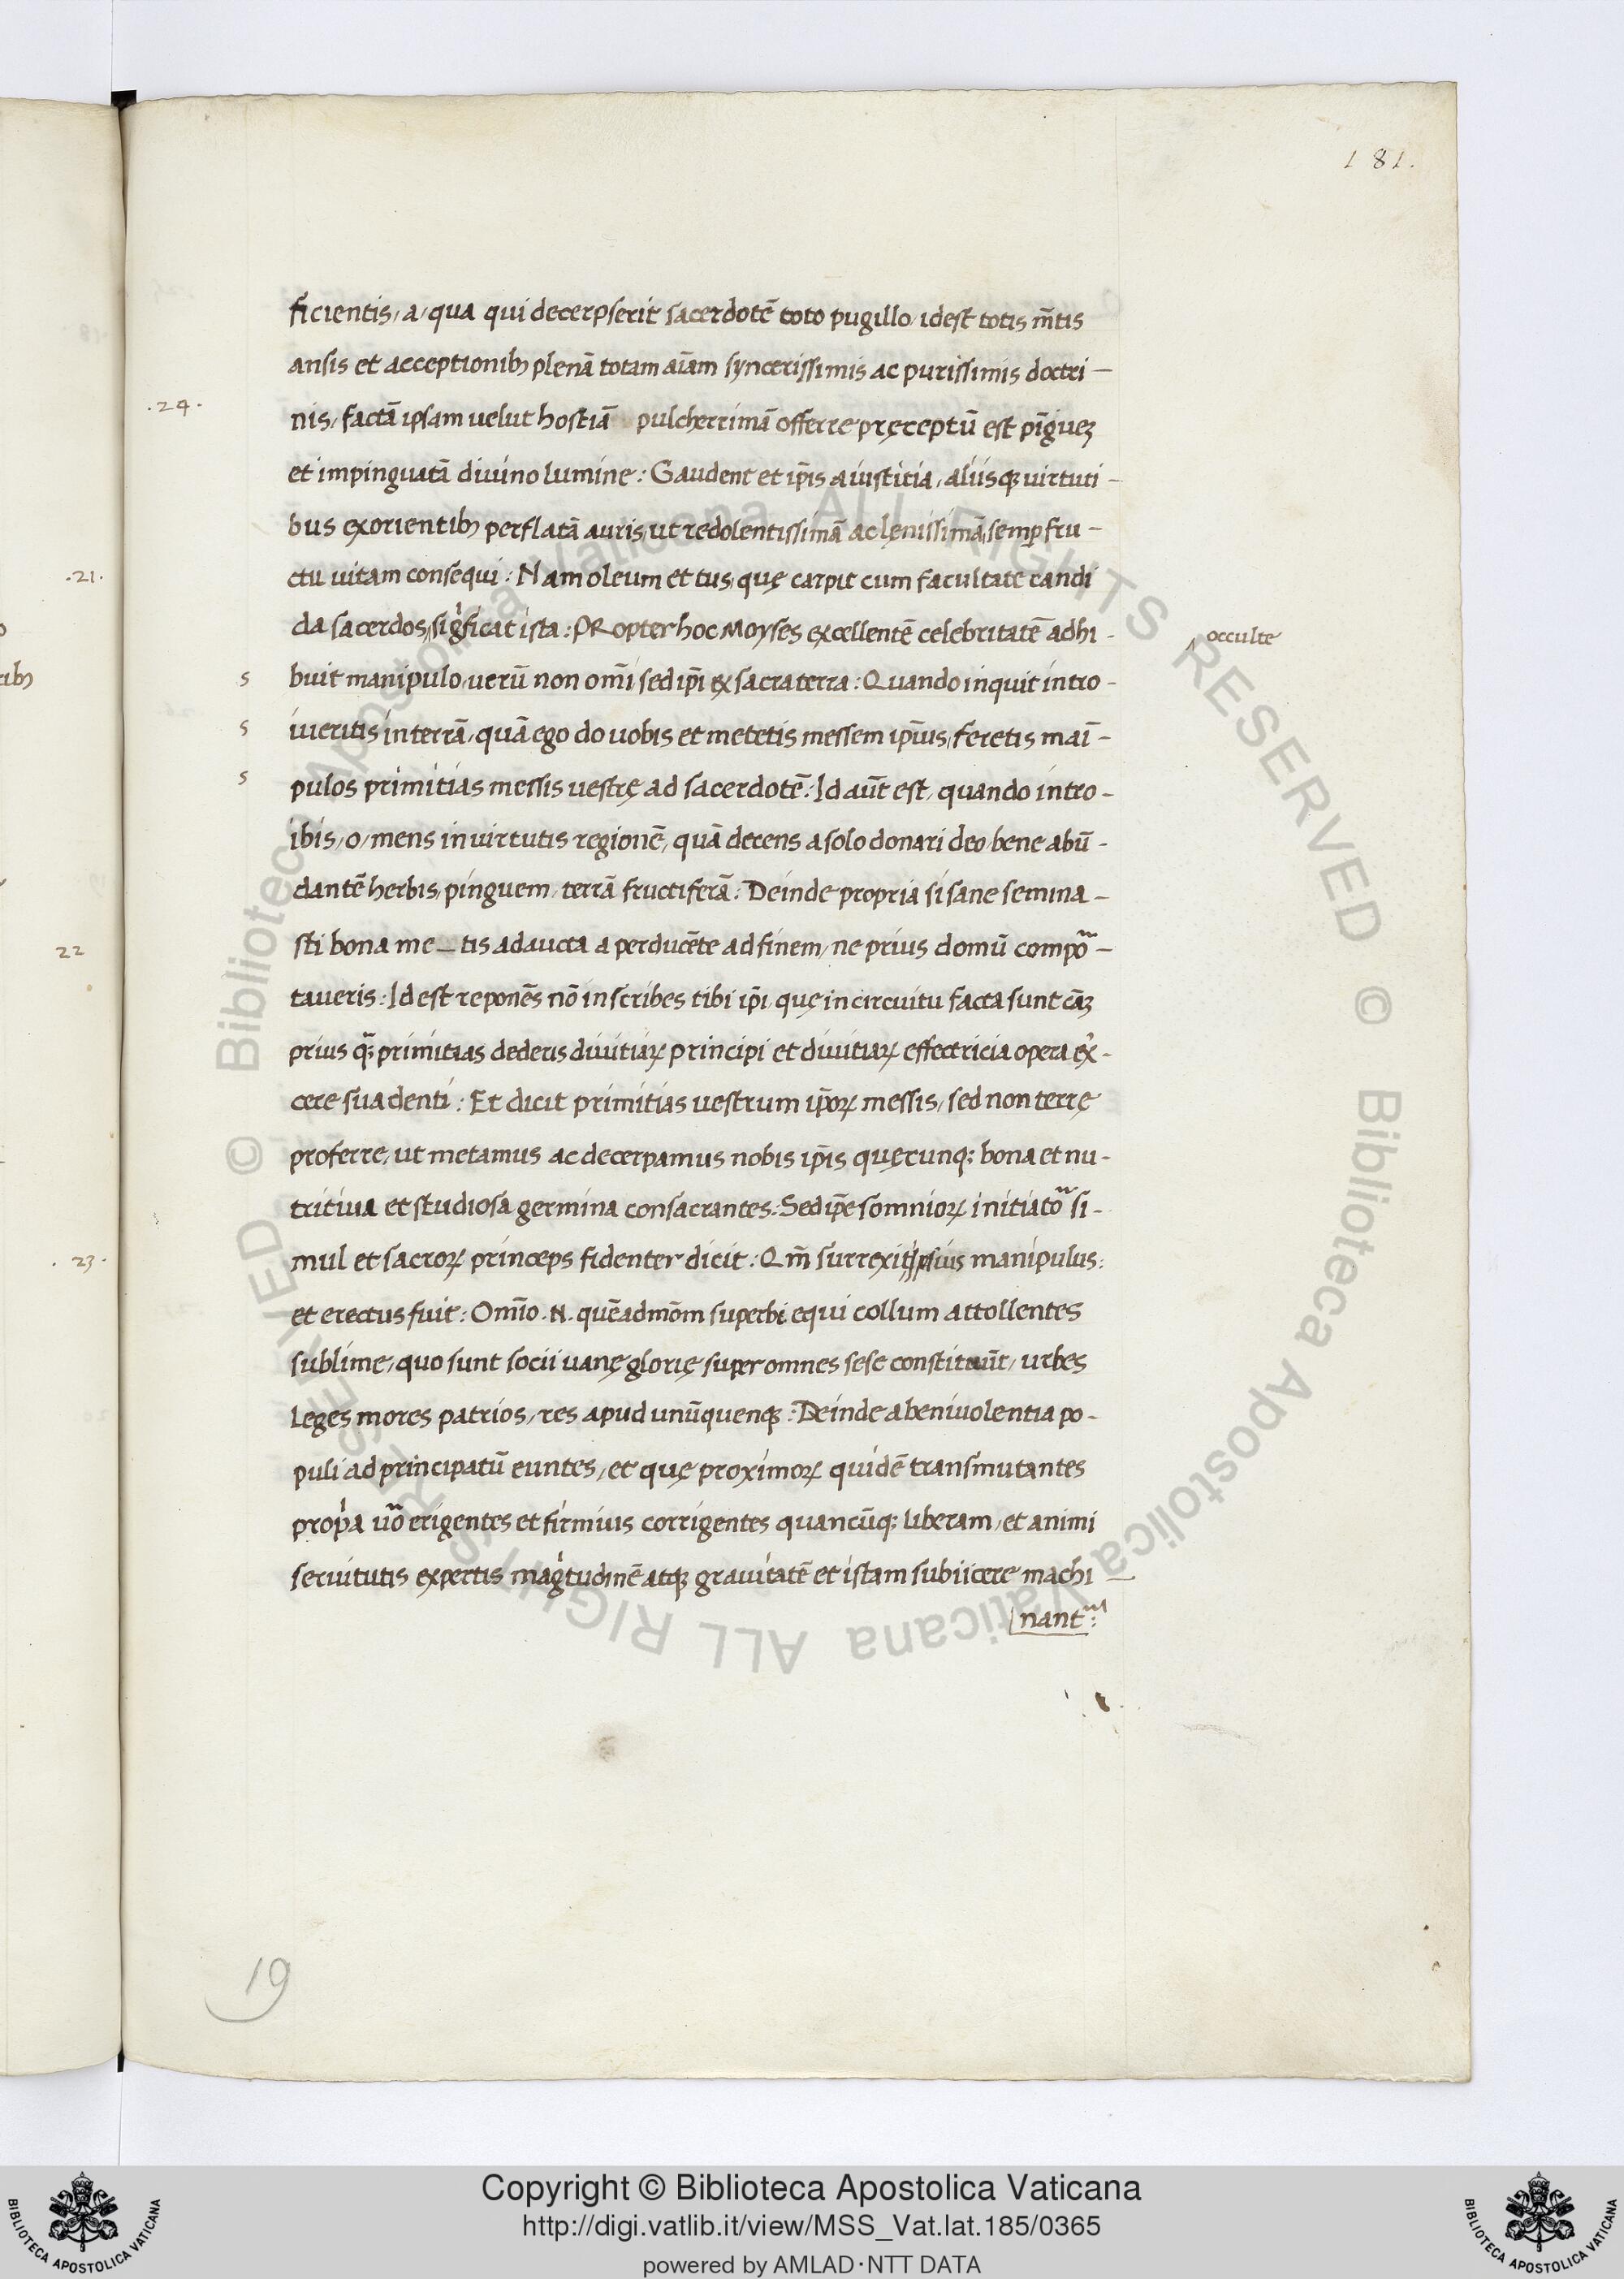 181.
ficientis, a, qua qui decerpserit sacerdotē toto pugillo, idest totis m̄tis
ansis et acceptionib; plenā totam aīam syncerissimis ac purissimis doctri —
.24.
nis, factā ipsam uelut hostiā pulcherrimā offerre pręceptū est pīguēꝫ
et impinguatā diuino lumine : Gaudent et ip̄is a iustitia, aliisqꝫ uirtuti -
bus exorientib; perflatā auris, ut redolentissimā ac lęnissimā, semp̱ fru -
.21.
ctu uitam consequi : Nam oleum et tus, quę carpit cum facultate candi
da sacerdos, sigͥficat ista : PRopter hoc Moyses excellentē celebritatē adhi -
occulte
s
buit manipulo, uerū non om̄i sed ip̄i ex sacra terra : Quando inquit intro -
s
iueritis in terrā, quā ego do uobis et metetis messem ip̄ius, feretis maī -
s
pulos primitias messis uestrę ad sacerdotē : Id aūt est, quando intro -
ibis, o, mens in uirtutis regionē, quā decens a solo donari deo, bene abū -
dantē herbis, pinguem, terrā fructiferā : Deinde propria si sane semina -
22
sti bona me — tis adaucta a perducēte ad finem, ne prius domū compoᷓ —
taueris : Id est reponēs nō inscribes tibi ip̄i, quę in circuitu facta sunt cāꝫ
prius qᷓ; primitias dederis diuitiaꝝ principi et diuitiaꝝ effectricia opera ex̾ -
cere suadenti : Et dicit primitias uestrum ip̄oꝝ messis, sed non terrę
proferre, ut metamus ac decerpamus nobis ip̄is quęcunq; bona et nu -
tritiua et studiosa germina consacrantes : Sed ip̄e somnioꝝ initiatoᷓ si -
. 23 .
mul et sacroꝝ princeps fidenter dicit : Qm̄ surrexit ipsius manipulus :
et erectus fuit : Om̄io . N . quēadmōm superbi equi collum attollentes
sublime, quo sunt socii uanę glorię super omnes sese constituūt, urbes
leges mores patrios, res apud unūquenqꝫ : Deinde a beniuolentia po -
puli ad principatū euntes, et quę proximoꝝ quidē transmutantes
prop̱ͥa uᷓo erigentes et firmius corrigentes quancūq; liberam, et animi
seruitutis expertis magͥtudinē atqꝫ grauitatē et istam subiicere machi —
nant᷑ :
19
Copyright © Biblioteca Apostolica Vaticana
http://digi.vatlib.it/view/MSS_Vat.lat.185/0365
powered by AMLAD·NTT DATA
BIBLIOTECA APOSTOLICA VATICANA
BIBLIOTECA APOSTOLICA VATICANA
© Biblioteca Apostolica Vaticana ALL RIGHTS RESERVED © Biblioteca Apostolica Vaticana ALL RIGHTS RESERVED